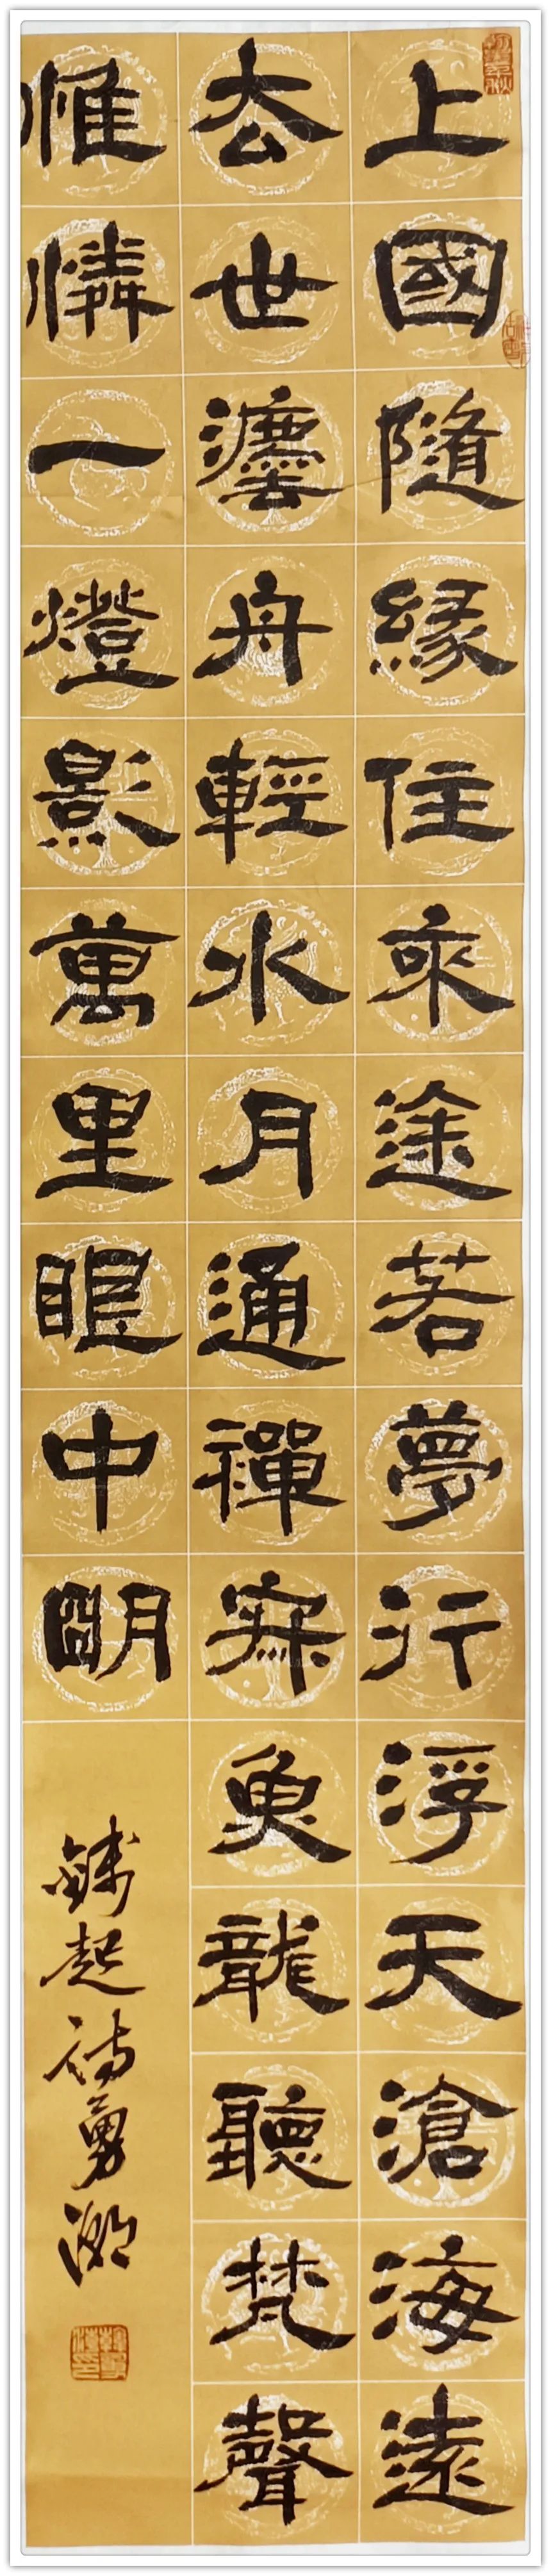 上國隨緣住來途若夢行浮天滄海遠
去世灋舟輕水月通禪寂魚龍聽梵聲
惟憐一燈影萬里眼中明
錢起詩勇潮